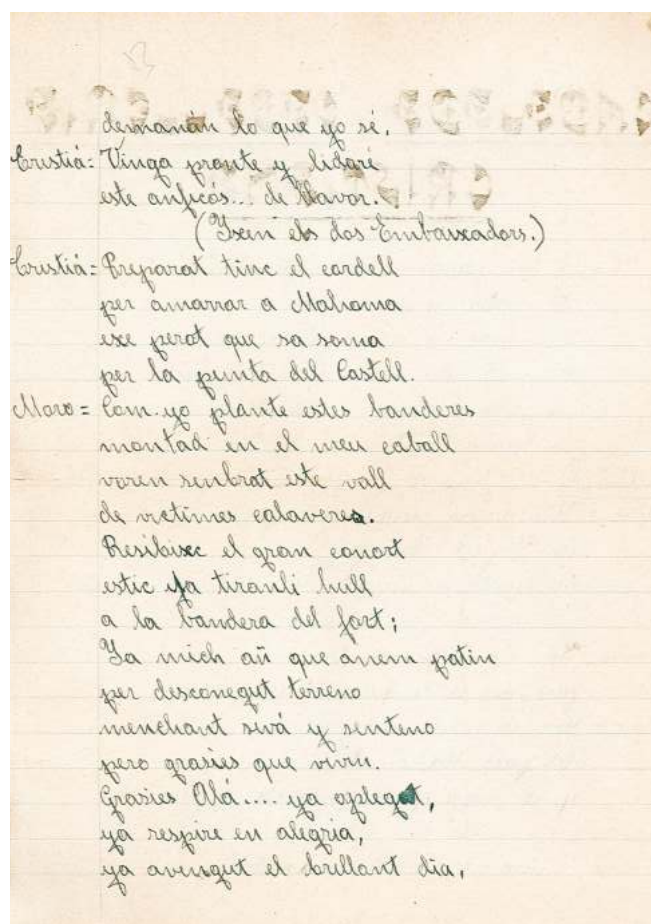 demanán lo que yo sé.
Cristiá = Vinga pronte y lidaré
este anficós... de llavor.
(Ixen els dos Embaixadors.)
Cristiá = Preparat tinc el cordell
per amarrar a Mahoma
exe perot que sa soma
per la punta del Castell.
Moro = Com yo plante estes banderes
montad en el meu caball
voren senbrat este vall
de victimes calaveres.
Resibixc el gran conort
estic ya tiranli hull
a la bandera del fort;
Ya mich añ que anem patin
per desconegut terreno
menchant sivá y senteno
pero grasies que vivin.
Grasies Alá.... ya aplegat,
ya respire en alegria,
ya avengut el brillant dia,